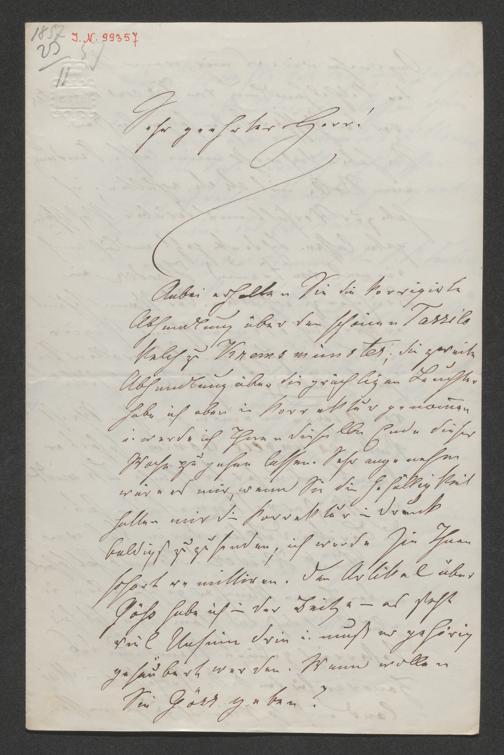 1857
25
11
J. N. 99357
Sehr geehrter Herr!
Anbei erhalten Sie die korrigirte
Abhandlung über den schönen Tassilo
Kelch zu Kremsmünster; die zweite
Abhandlung über die prächtigen Leuchter
habe ich eben in Korrektur genommen
u. werde ich Ihnen dieselbe Ende dieser
Woche zugehen lassen. Sehr angenehm
wäre es mir, wenn Sie die Gefälligkeit
hätten mir die Korrektur in Druck
baldigst zuzusenden, ich werde sie Ihnen
sofort remittiren. Den Artikel über
Göss habe ich in der — es steht
viel Unsinn drin u. muß er gehörig
gesäubert werden. Wann wollen
Sie Göss geben?